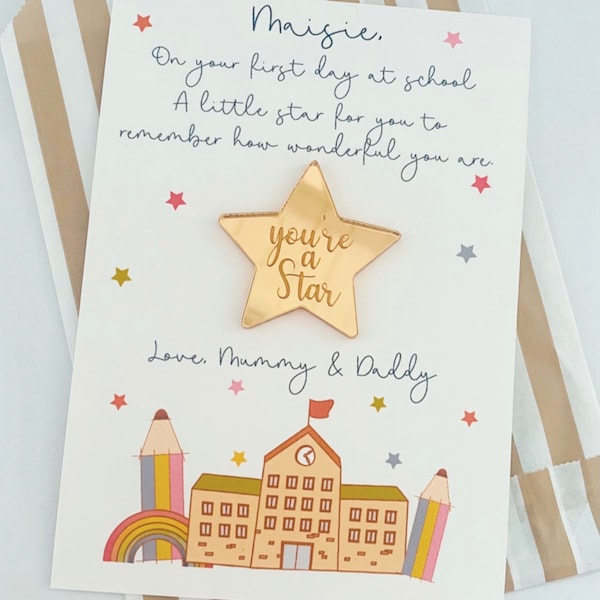 Maisie,
On your first day at school
A little star for you to
remember how wonderful you are.
you're
a
Star
Love, Mummy & Daddy